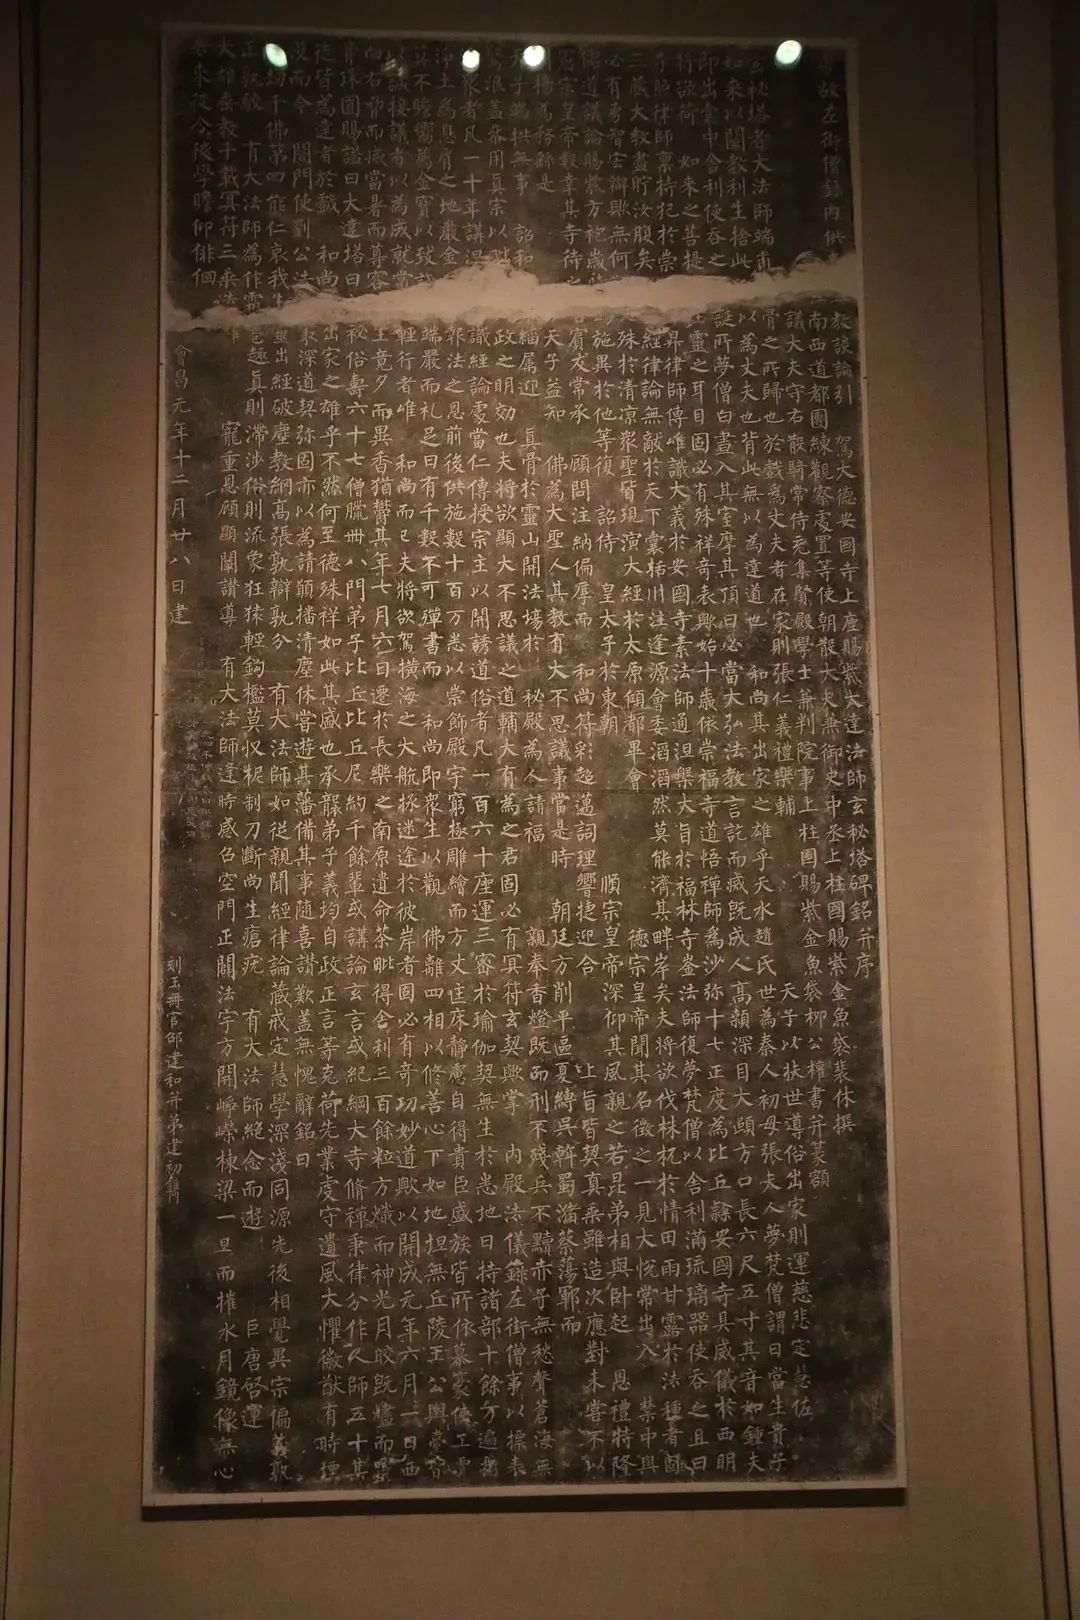 故左街僧錄內供教談論引 駕大德安國寺上座賜紫大達法師玄秘塔碑銘并序
南西道都團練觀察處置等使朝散大夫兼御史中丞上柱國賜紫金魚袋裴休撰
議大夫守右散騎常侍充集賢殿學士兼判院事上柱國賜紫金魚袋柳公權書并篆額
玄秘塔者大法師端甫骨之所歸也於戲為丈夫者在家則張仁義禮樂輔 天子以扶世導俗出家則運慈悲定慧佐
如來以闡教利生捨此以為丈夫也背此無以為達道也 和尚其出家之雄乎天水趙氏 世為秦人初母張夫人夢梵僧謂曰當生貴子
即出囊中舍利使吞之誕所夢僧白晝入其室摩其頂曰必當大弘法教言訖而滅既成人高顙深目大頤方口長六尺五寸其音如鍾夫
將欲荷 如來之菩提生靈之耳目固必有殊祥奇表歟始十歲依崇福寺道悟禪師為沙弥十七正度為比丘隸安國寺具威儀於西明
寺照律師稟持犯於崇昇律師傳唯識大義於安國寺素法師通涅槃大旨於福林寺崟法師復夢梵僧以舍利滿琉璃器使吞之且曰
三藏大教盡貯汝腹矣經律論無敵於天下囊括川注逢源會委滔滔然莫能濟其畔岸矣夫將欲伐株杌於情田雨甘露於法種者固
必有勇智宏辯歟無何殊於清涼眾聖皆現演大經於太原傾都畢會 德宗皇帝聞其名徵之一見大悅常出入 禁中與
儒道議論賜紫方袍歲施異於他等復 詔侍 皇太子於東朝 順宗皇帝深仰其風親之若昆弟相與臥起 恩禮特隆
憲宗皇帝數幸其寺待之賓友常承 顧問注納偏厚而 和尚符彩超邁詞理響捷迎合 上旨皆契真乘雖造次應對未嘗不以
闡揚為務繇是 天子益知 佛為大聖人其教有大不思議事當是時 朝廷方削平區夏縛吳斡蜀瀦蔡蕩鄆而
天子端拱無事 詔和緇属迎 真骨於靈山開法場於 秘殿為人請福 親奉香燈既而刑不殘兵不黷赤子無愁聲蒼海無
驚浪蓋參用真宗以毗政之明効也夫將欲顯大不思議之道輔大有為之君固必有冥符玄契歟掌 內殿法儀錄左街僧事以摽表
淨眾者凡一十年講涅識經論處當仁傳授宗主以開誘道俗者凡一百六十座運三密於瑜伽契無生於悉地日持諸部十餘万遍指
淨土為息肩之地嚴金報法之恩前後供施數十百万悉以崇飾殿宇窮極雕繪而方丈匡床靜慮自得貴臣盛族皆所依慕豪俠工賈
莫不瞻嚮薦金寶以致誠端嚴而礼足日有千數不可殫書而 和尚即眾生以觀 佛離四相以修善心下如地坦無丘陵王公輿臺皆
以誠接議者以為成就常輕行者唯 和尚而已夫將欲駕橫海之大航拯迷途於彼岸者固必有奇功妙道歟以開成元年六月一日西
向右脅而滅當暑而尊容生竟夕而異香猶鬱其年七月六日遷於長樂之南原遺命荼毗得舍利三百餘粒方熾而神光月皎既燼而靈
骨珠圓賜謚曰大達塔曰秘俗壽六十七僧臘卌八門弟子比丘比丘尼約千餘輩或講論玄言或紀綱大寺脩禪秉律分作人師五十其
徒皆為達者於戲 和尚出家之雄乎不然何至德殊祥如此其盛也承襲弟子義均自政正言等克荷先業虔守遺風大懼徽猷有時堙
沒而今 閤門使劉公法最深道契弥固亦以為請願播清塵休嘗遊其藩備其事隨喜讚歎蓋無愧辭銘曰
劫千佛第四能仁哀我生靈出經破塵教網高張孰辯孰分 有大法師如從親聞經律論藏戒定慧學深淺同源先後相覺異宗偏義孰
正孰駮 有大法師為作霜雹趣真則滯涉俗則流象狂猿輕鉤檻莫收柅制刀斷尚生瘡疣 有大法師絕念而遊 巨唐啓運
大雄垂教千載冥符三乘迭耀 寵重恩顧顯闡讚導 有大法師逢時感召空門正闢法宇方開崢嶸棟梁一旦而摧水月鏡像無心
去來徒令後學瞻仰徘徊
會昌元年十二月廿八日建 刻玉冊官邵建和并弟建初鐫